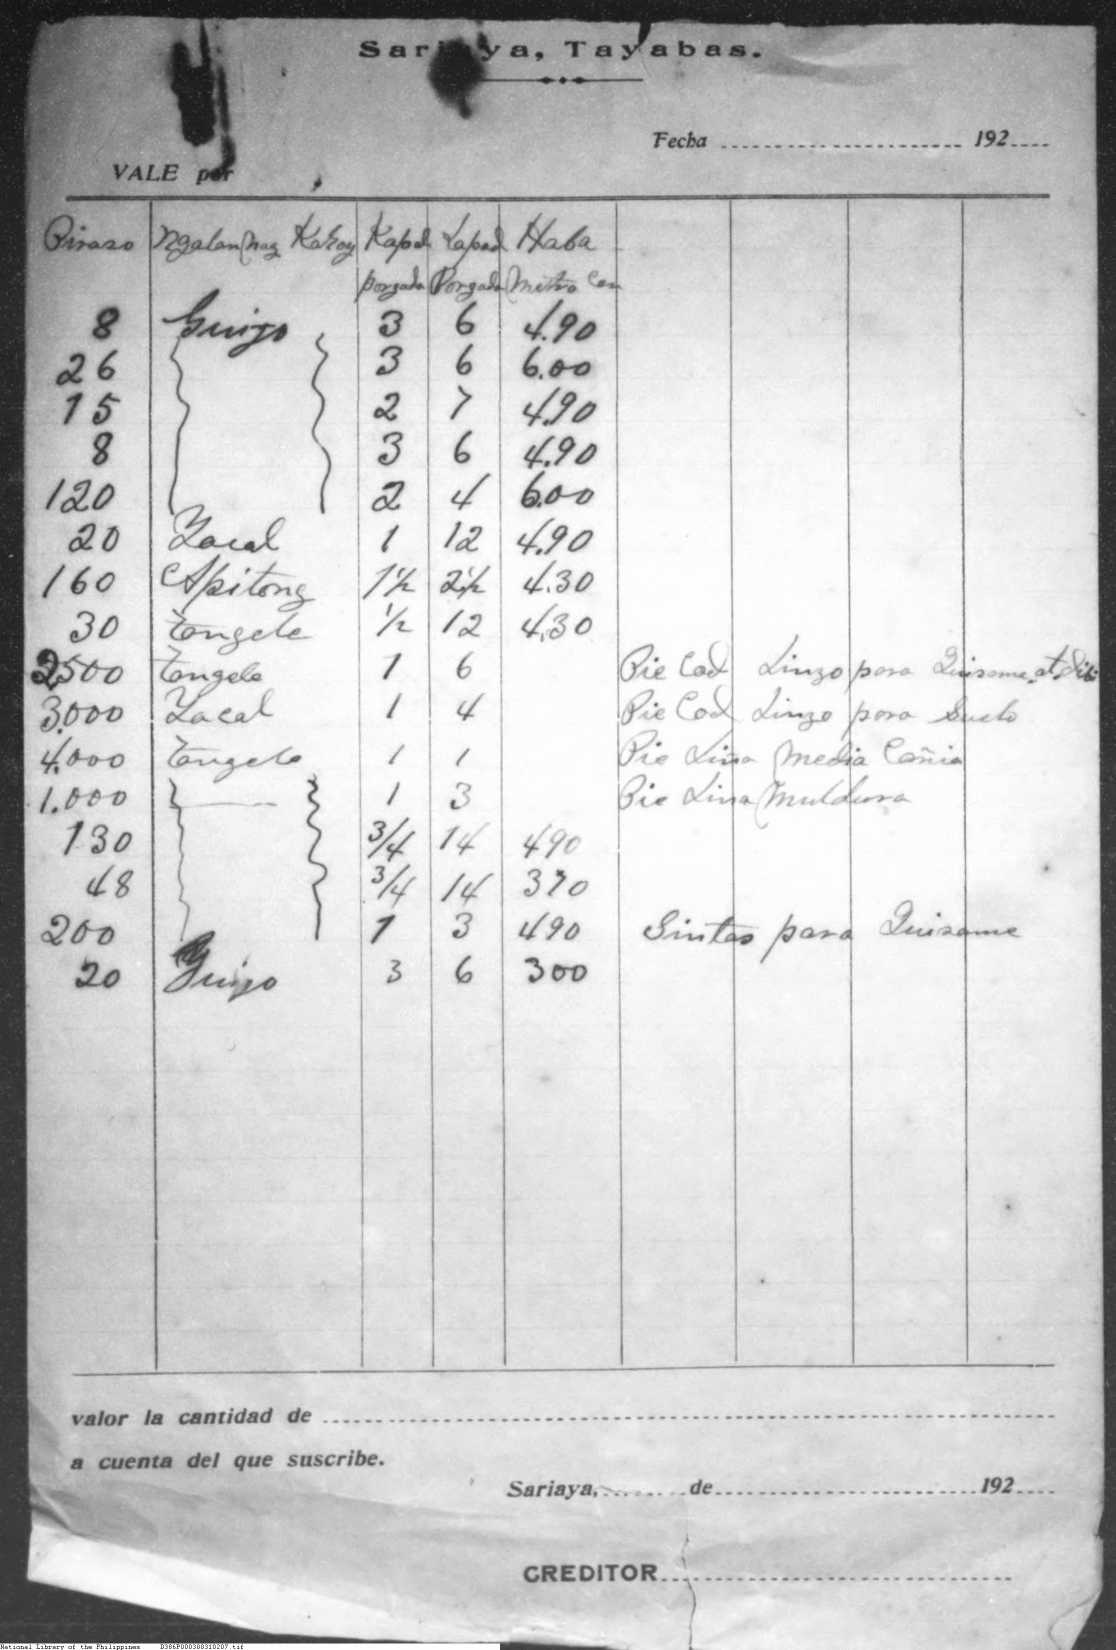 Sariaya, Tayabas.
Fecha 192
VALE por
Piraso Ngalan nag Kahoy Kapal Lapad Haba
porgada Porgada Metro Cen
8 Guijo 3 6 4.90
26 3 6 6.00
15 2 7 4.90
8 3 6 4.90
120 2 4 6.00
20 Yacal 1 12 4.90
160 Apitong 1½ 2½ 4.30
30 Tangele ½ 12 4.30
2500 Tangele 1 6 Pie Cad Linzo para Quisame at
3.000 Yacal 1 4 Pie Cad Linzo para Suelo
4.000 Tangele 1 1 Pie Liña Media Cañia
1.000 1 3 Pie Lina Muldura
130 3/4 14 490
48 3/4 14 370
200 1 3 490 Sintas para Quisame
20 Guijo 3 6 300
valor la cantidad de
a cuenta del que suscribe.
Sariaya, de 192
CREDITOR
National Library of the Philippines D386P000300310207.tif